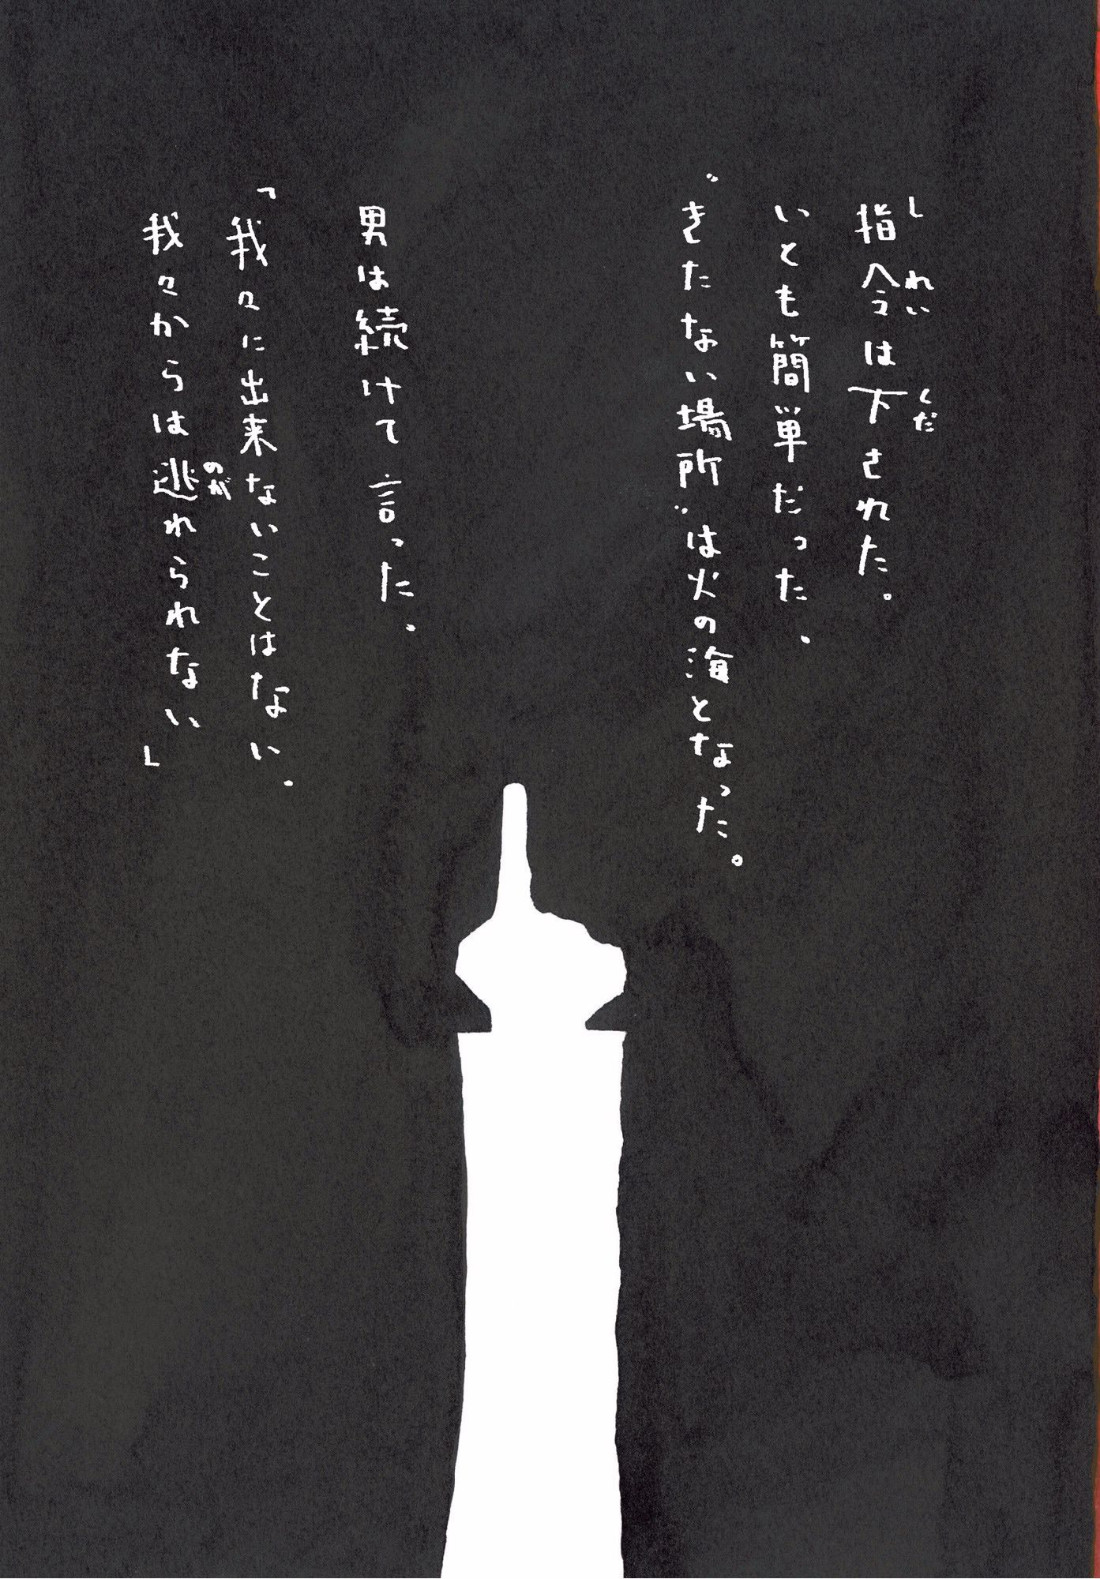 指令は下された。
いとも簡単だった。
〝きたない場所〟は火の海となった。
男は続けて言った。
「我々に出来ないことはない。
我々からは逃れられない」